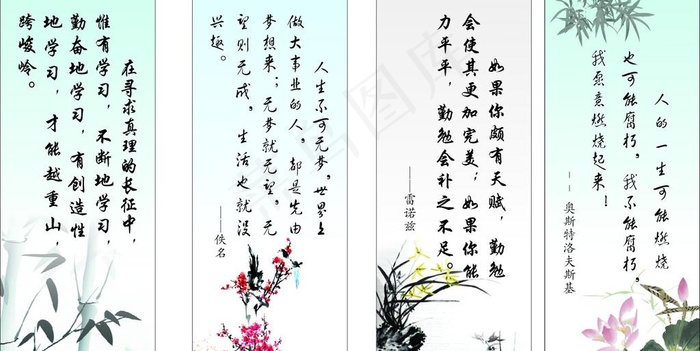 在寻求真理的长征中，
惟有学习，不断地学习，
勤奋地学习，有创造性
地学习，才能越重山，
跨峻岭。
人生不可无梦，世界上
做大事业的人，都是先由
梦想来；无梦就无望，无
望则无成，生活也就没
兴趣。
——佚名
如果你颇有天赋，勤勉
会使其更加完美；如果你能
力平平，勤勉会补之不足。
——雷诺兹
人的一生可能燃烧
也可能腐朽，我不能腐朽，
我愿意燃烧起来！
——奥斯特洛夫斯基